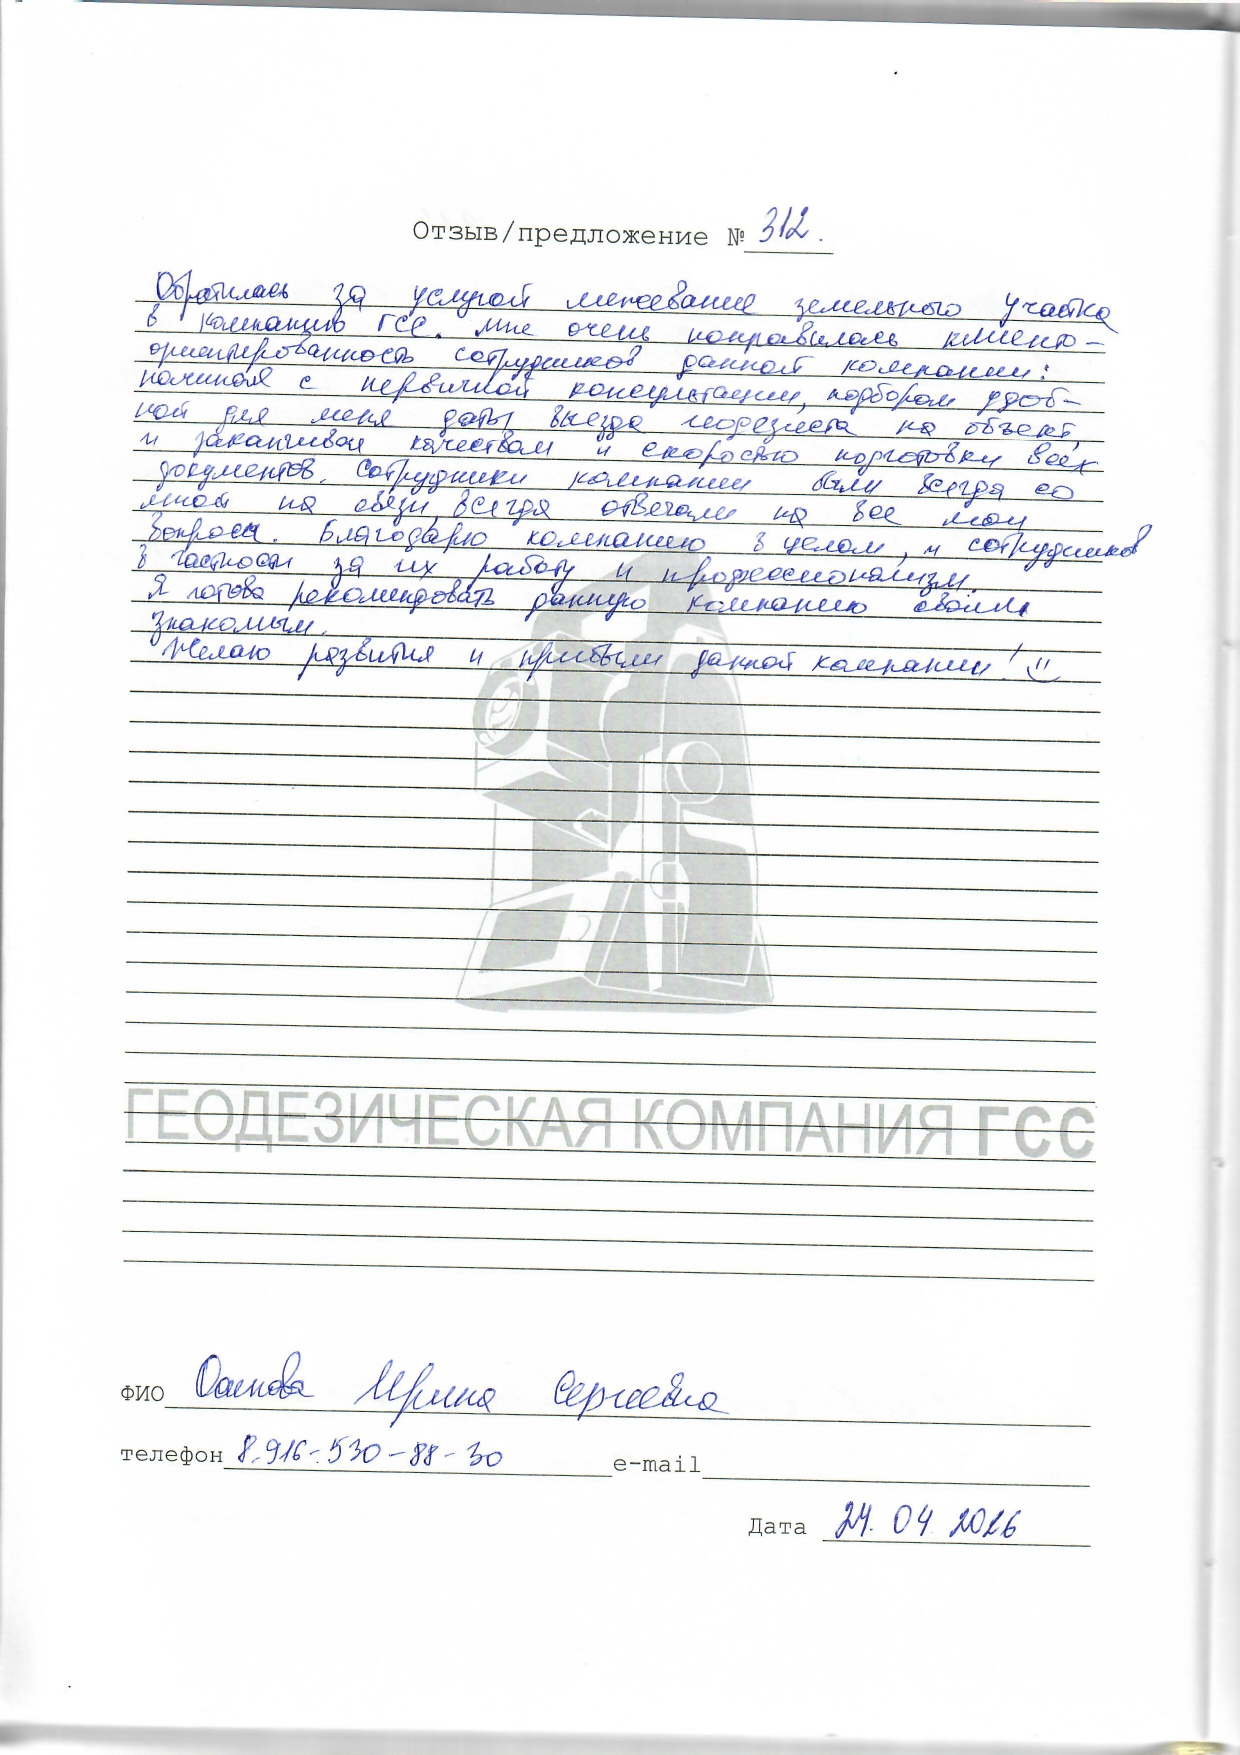 Отзыв/предложение № 312.
Обратилась за услугой межевание земельного участка
в компанию ГСС. Мне очень понравилась клиенто-
ориентированность сотрудников данной компании:
начиная с первичной консультации, подбором удоб-
ной для меня даты выезда геодезиста на объект,
и заканчивая качеством и скоростью подготовки всех
документов. Сотрудники компании были всегда со
мной на связи, всегда отвечали на все мои
вопросы. Благодарю компанию в целом, и сотрудников
в частности за их работу и профессионализм.
Я готова рекомендовать данную компанию своим
знакомым.
Желаю развития и прибыли данной компании!
ГЕОДЕЗИЧЕСКАЯ КОМПАНИЯ ГСС
ФИО Ирина Сергеевна
телефон 8-916-530-88-30 e-mail
Дата 24.04 2026